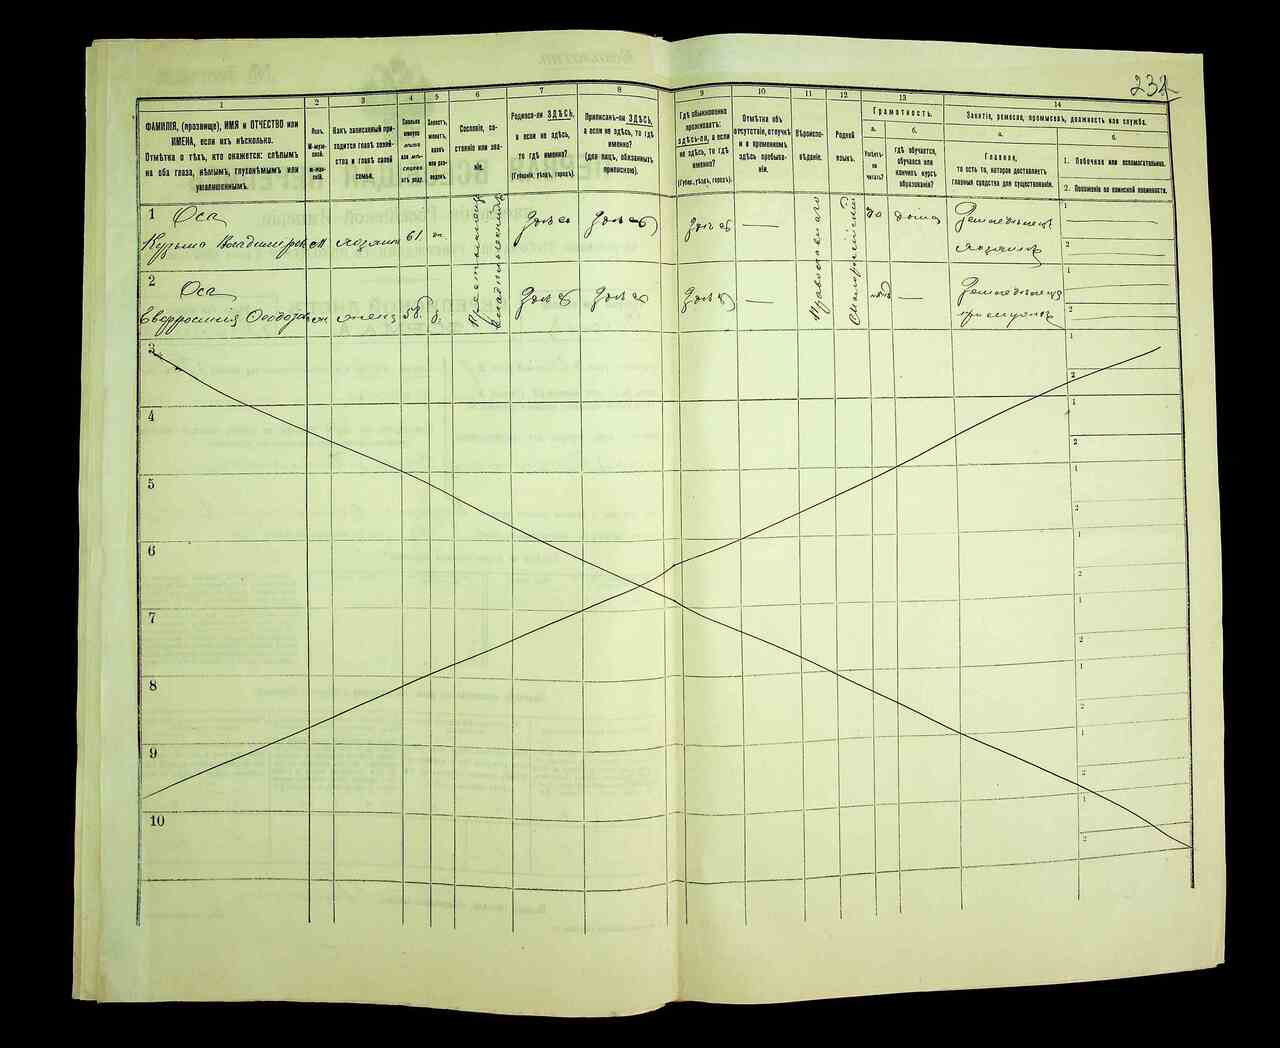 232
1
2
3
4
5
6
7
8
9
10
11
12
13
14
ФАМИЛІЯ, (прозвище), ИМЯ и ОТЧЕСТВО или
ИМЕНА, если ихъ нѣсколько.
Отмѣтка о тѣхъ, кто окажется: слѣпымъ
на оба глаза, нѣмымъ, глухонѣмымъ или
умалишеннымъ.
Полъ.
М-муж-
ской.
Ж-жен-
скій.
Какъ записанный при-
ходится главѣ хозяй-
ства и главѣ своей
семьи.
Сколько
минуло
лѣтъ
или мѣ-
сяцевъ
отъ роду.
Холостъ,
женатъ,
вдовъ
или раз-
веденъ.
Сословіе, со-
стояніе или зва-
ніе.
Родился-ли ЗДѢСЬ,
а если не здѣсь,
то гдѣ именно?
(Губернія, уѣздъ, городъ).
Приписанъ-ли ЗДѢСЬ,
а если не здѣсь, то гдѣ
именно?
(для лицъ, обязанныхъ
припискою).
Гдѣ обыкновенно
проживаетъ:
ЗДѢСЬ-ЛИ, а если
не здѣсь, то гдѣ
именно?
(Губер., уѣздъ, городъ).
Отмѣтка объ
отсутствіи, отлучкѣ
и о временномъ
здѣсь пребыва-
ніи.
Вѣроиспо-
вѣданіе.
Родной
языкъ.
Грамотность.
а.
б.
Умѣетъ-
ли
читать?
гдѣ обучается,
обучался или
кончилъ курсъ
образованія?
Занятіе, ремесло, промыселъ, должность или служба.
а.
б.
Главное,
то есть то, которое доставляетъ
главныя средства для существованія.
1. Побочное или вспомогательное.
2. Положеніе по воинской повинности.
1 Оса
Кузьма Владимеров м хозяинъ 61 ж. здѣсь здѣсь здѣсь — да дома
1
2
2 Оса
Евфросинія Феодоров ж жена 58 здѣсь здѣсь здѣсь — нѣтъ —
1
2
Православнаго
Малорсійскій
3
1
2
4
1
2
5
1
2
6
1
2
7
1
2
8
1
2
9
1
2
10
1
2